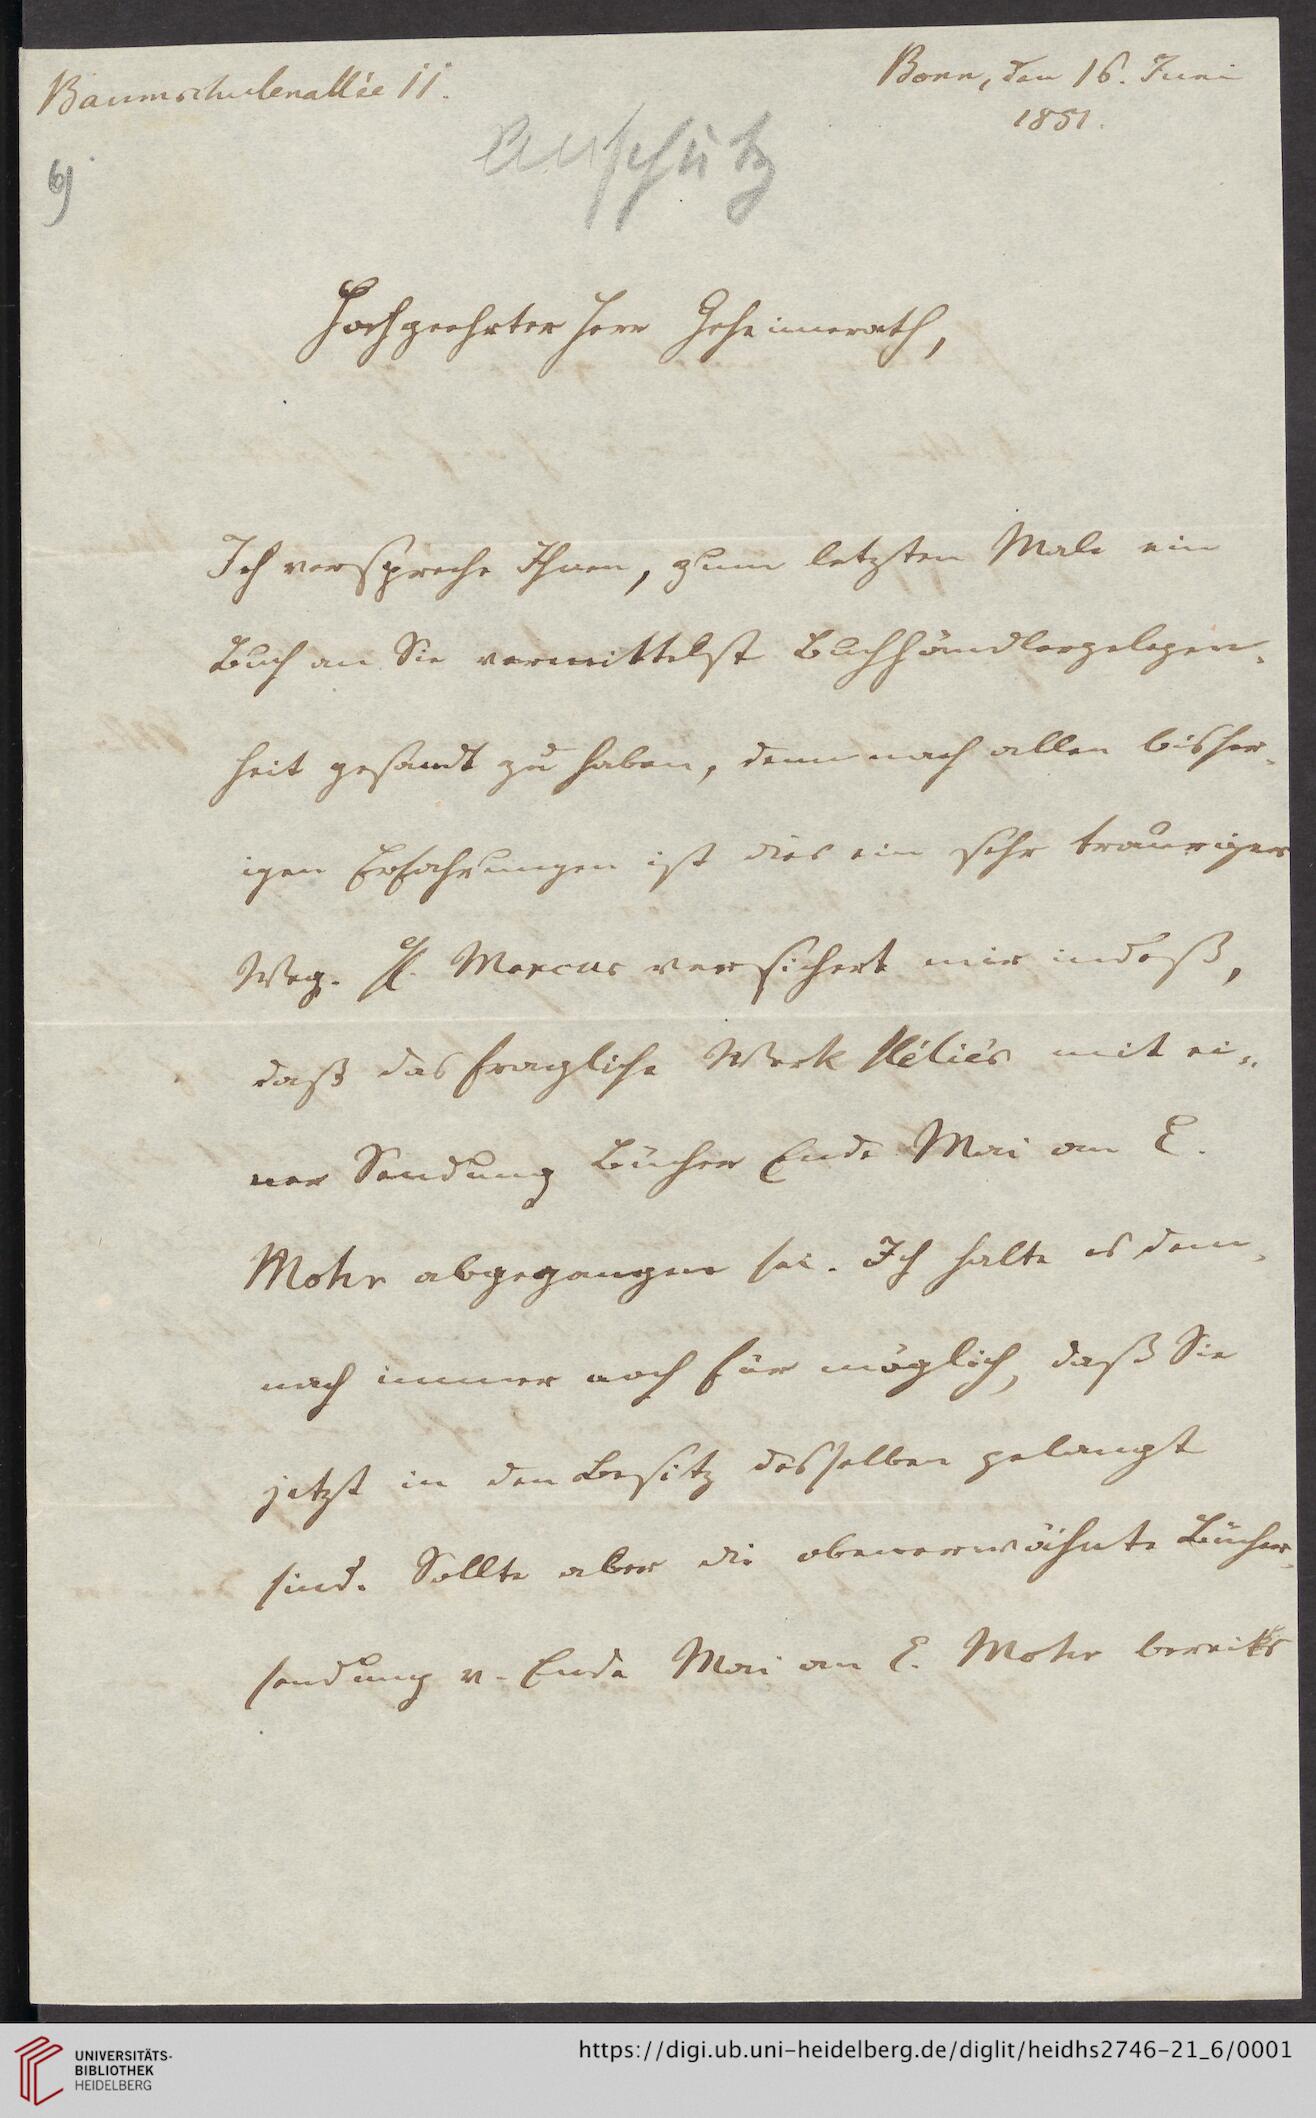 Baumschulenallée 11.
Bonn, den 16. Juni
1851.
6)
Anschütz
Hochgeehrter Herr Geheimerath,
Ich verspreche Ihnen, zum letzten Male ein
Buch an Sie vermittelst Buchhändlergelegen-
heit gesandt zu haben, denn nach allen bisher-
igen Erfahrungen ist dies ein sehr trauriger
Weg. H. Marcus versichert mir indeß,
daß das fragliche Werk Hélie's mit ei-
ner Sendung Bücher Ende Mai an E.
Mohr abgegangen sei. Ich halte es dem-
nach immer noch für möglich, daß Sie
jetzt in den Besitz desselben gelangt
sind. Sollte aber die obenerwähnte Bücher-
sendung v. Ende Mai an E. Mohr bereits
UNIVERSITÄTS-
BIBLIOTHEK
HEIDELBERG
https://digi.ub.uni-heidelberg.de/diglit/heidhs2746-21_6/0001